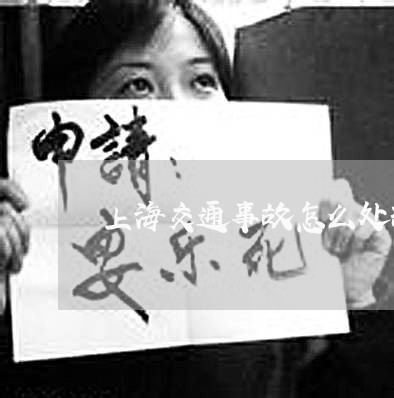 申請：
上海交通事故怎么处
安乐死